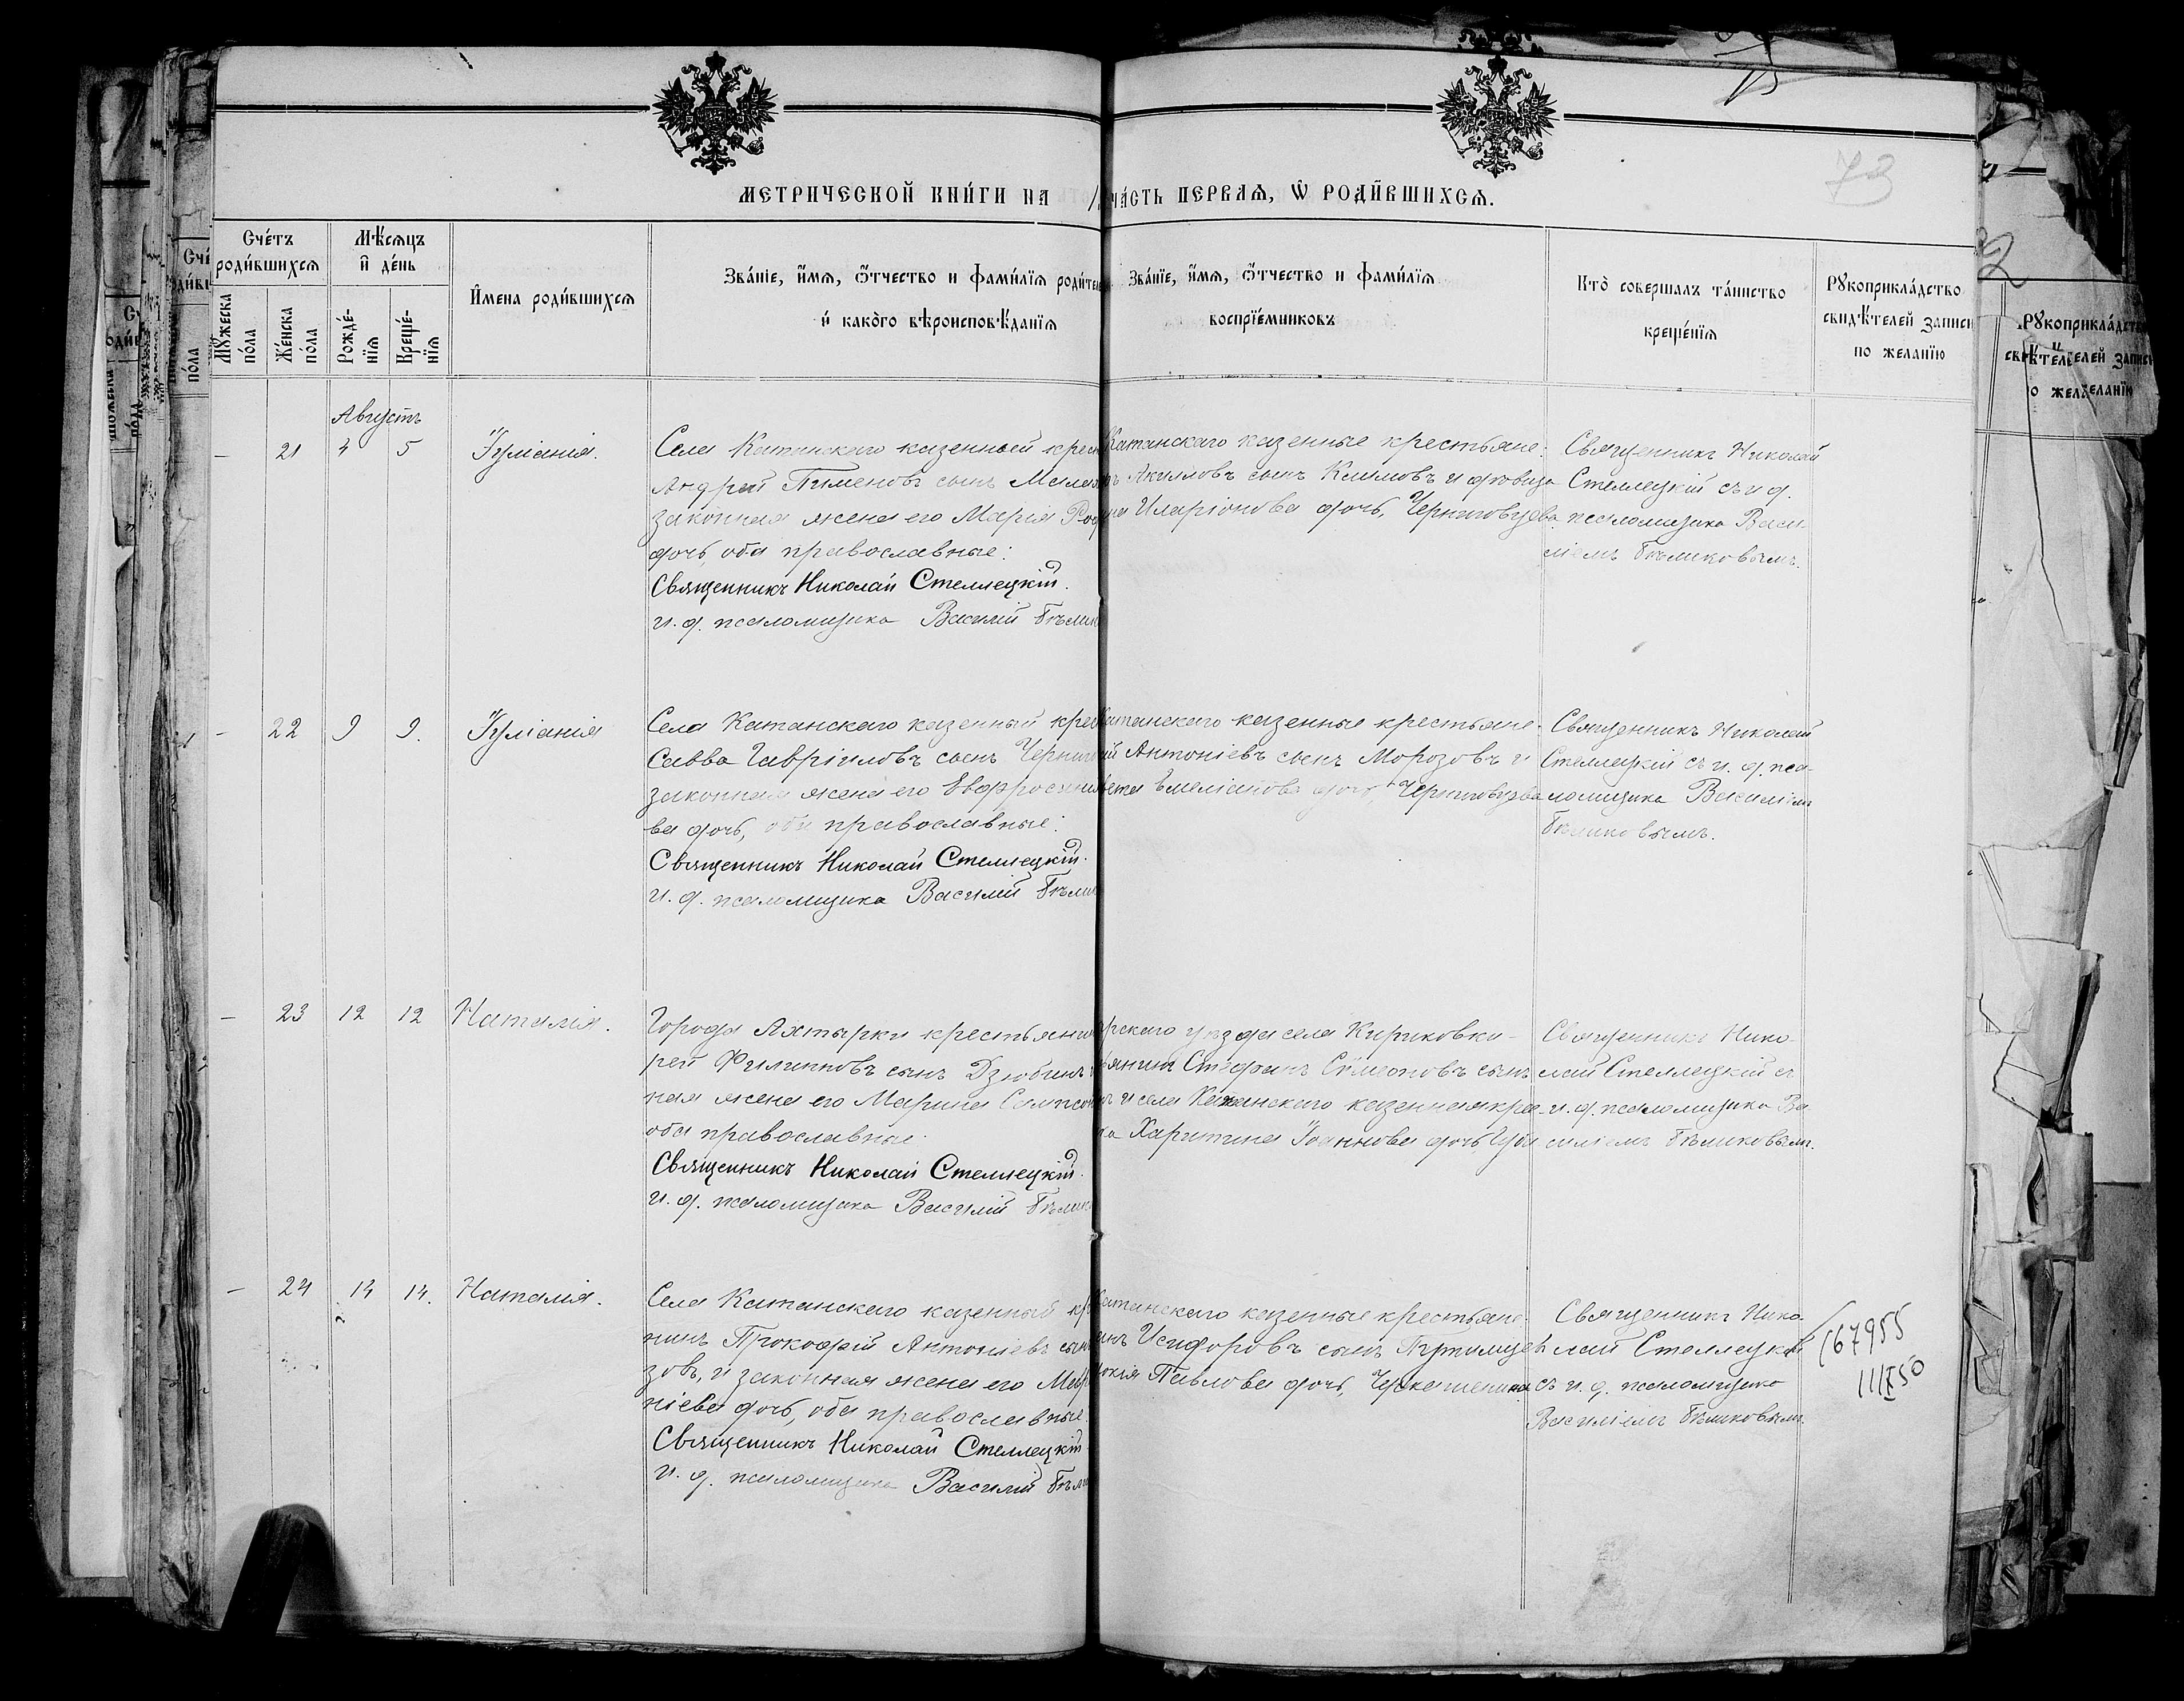 МЕТРИЧЕСКОЙ КНИ́ГИ НА
ЧА́СТЬ ПЕРВАѦ, Ѡ҆ РОДИ́ВШИХСѦ.
73
Сче́тъ роди́вшихсѧ
Мѣ́сѧцъ и҆ де́нь
Мꙋ́жеска по́ла
Же́нска по́ла
Рожде́-нїѧ
Креще́-нїѧ
И҆мена роди́вшихсѧ
Зва́нїе, и҆́мѧ, ѻ҆́тчество и фами́лїѧ роди́те
и҆ како́гѡ вѣроисповѣ́данїѧ
Зва́нїе, и҆́мѧ, ѻ҆́тчество и фами́лїѧ
воспрїе́мниковъ
Кто̀ совершалъ та́инство
креще́нїѧ
Рꙋкоприкла́дство
свидѣ́телей записи
по желанїю
Августъ
– 21 4 5 Іуліанія.
Села Катанского казенный крест
Андрей Пименовъ сынъ
законная жена его Марія Род
дочь, оба православные:
Священникъ Николай Стеллецкій.
и. д. псаломщика Василій Бѣлик
Катанскаго казенные крестьяне:
Акимовъ сынъ Климовъ и девица
Иларіонова дочь, Черниговцева
Священникъ Николай
Стеллецкій съ и. д.
псаломщика Васи-
ліемъ Бѣликовымъ.
– 22 9 9. Іуліанія
Села Катанскаго казенный крес
Савва Гавріиловъ сынъ Черниго
законная жена его Евфросині
ва дочь, оба православные:
Священникъ Николай Стеллецкій.
и. д. псаломщика Василій Бѣлик
Катанскаго казенные крестьяне:
Антоніевъ сынъ Морозовъ и
Емеліанова дочь, Черниговцева
Священникъ Николай
Стеллецкій съ и. д. пса-
ломщика Василіемъ
Бѣликовымъ.
– 23 12 12 Наталія.
Города Ахтырки крестьянин
рей Филипповъ сынъ Дзюбинъ
ная жена его Марина Сампсон
оба православные.
Священникъ Николай Стеллецкій.
и. д. псаломщика Василій Бѣлик
рскаго уѣзда села Кириковки
янинъ Стефанъ Симеоновъ сынъ
и села Катанскаго казенная кре-
ка Харитина Іоаннова дочь
Священникъ Нико-
лай Стеллецкій съ
и. д. псаломщика Ва-
силіемъ Бѣликовымъ.
– 24 14 14. Наталія.
Села Катанскаго казенный кр
нинъ Прокофій Антоніевъ сын
зовъ, и законная жена его Мав
ніева дочь, оба православные.
Священникъ Николай Стеллецкій
и. д. псаломщика Василій Бѣли
Катанскаго казенные крестьяне:
Исидоровъ сынъ
Павлова дочь,
Священникъ Нико-
лай Стеллецкій
съ и. д. псаломщика
Василіемъ Бѣликовымъ.
167955
111750